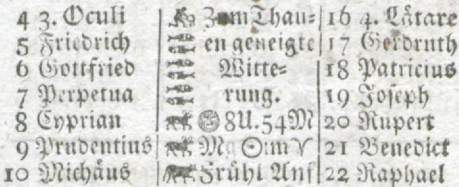 4 3. Oculi Zum Thau= 16 4. Lätare
5 Friedrich en geneigte 17 Gerdruth
6 Gottfried Witte= 18 Patricius
7 Perpetua rung. 19 Joseph
8 Cyprian 8U. 54M 20 Rupert
9 Prudentius ☉ im ♈ 21 Benedict
10 Michäus Frühl Anf 22 Raphael